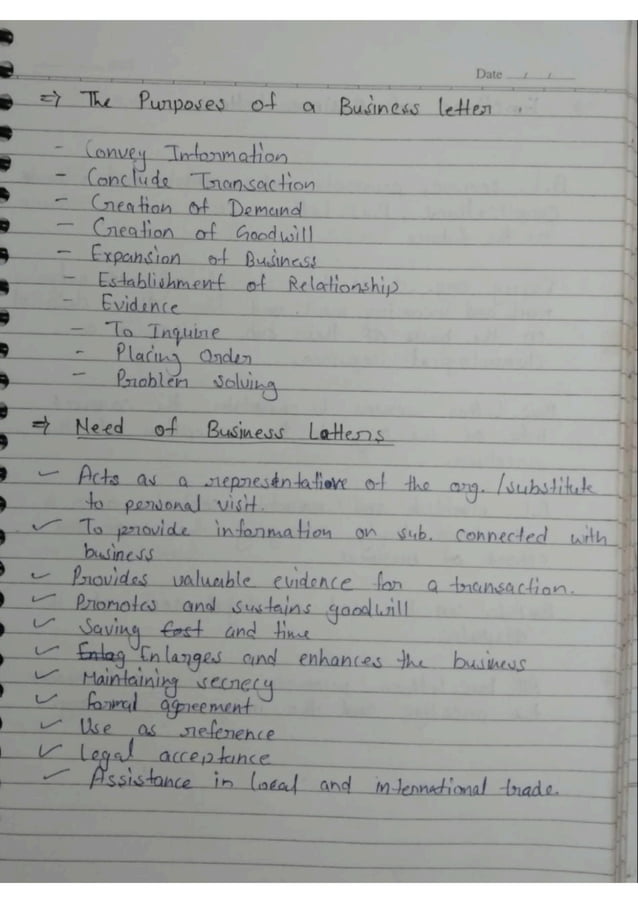 Date / /
⇒ The Purposes of a Business letter.
- Convey Information
- Conclude Transaction
- Creation of Demand
- Creation of Goodwill
- Expansion of Business
- Establishment of Relationship
- Evidence
- To Inquire
- Placing Order
- Problem solving
⇒ Need of Business Letters
✓ Acts as a representative of the org. /substitute
to personal visit.
✓ To provide information on sub. connected with
business
✓ Provides valuable evidence for a transaction.
✓ Promotes and sustains goodwill
✓ Saving cost and time
✓ Enlag Enlarges and enhances the business
✓ Maintaining secrecy
✓ formal agreement
✓ Use as reference
✓ Legal acceptance
✓ Assistance in local and international trade.